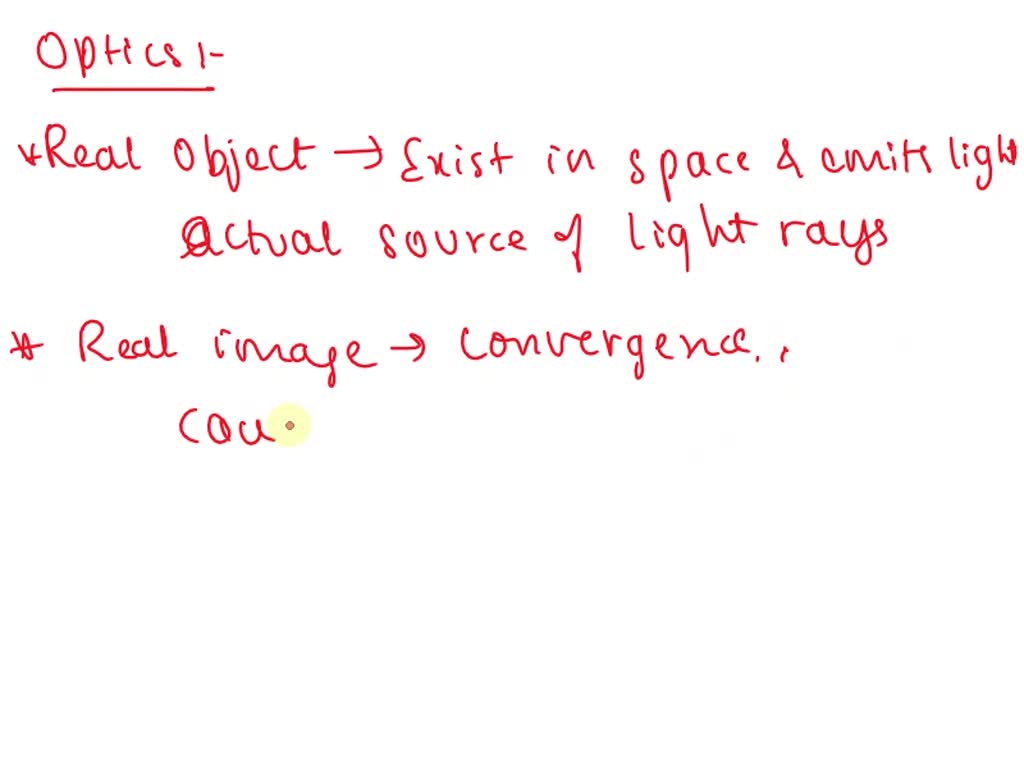 Optics :-
* Real Object → Exist in space & emits light
Actual source of light rays
* Real image → Convergence..
cau